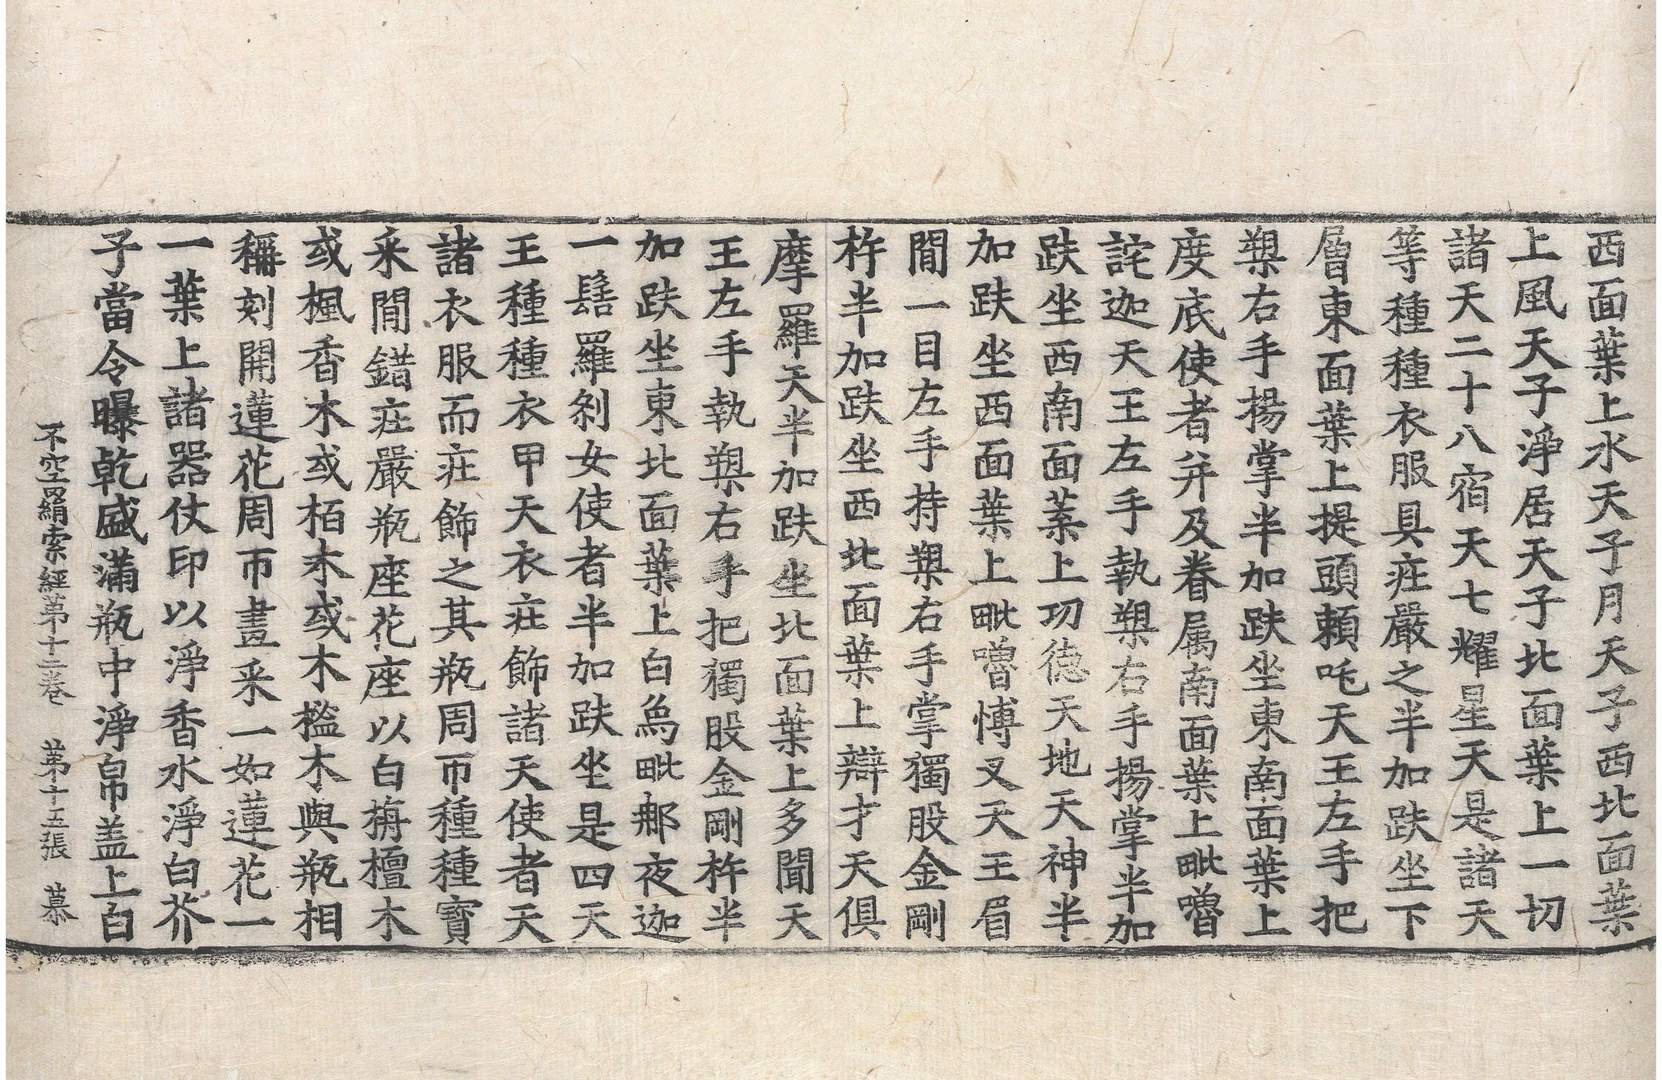 西面葉上水天子月天子西北面葉
上風天子淨居天子北面葉上一切
諸天二十八宿天七耀星天是諸天
等種種衣服具莊嚴之半加趺坐下
層東面葉上提頭賴吒天王左手把
槊右手揚掌半加趺坐東南面葉上
度底使者并及眷属南面葉上毗嚕
詫迦天王左手執槊右手揚掌半加
趺坐西南面葉上功德天地天神半
加趺坐西面葉上毗嚕博叉天王眉
間一目左手持槊右手掌獨股金剛
杵半加趺坐西北面葉上辯才天俱
摩羅天半加趺坐北面葉上多聞天
王左手執槊右手把獨股金剛杵半
加趺坐東北面葉上白烏毗那夜迦
一髻羅剎女使者半加趺坐是四天
王種種衣甲天衣莊飾諸天使者天
諸衣服而莊飾之其瓶周帀種種寶
采間錯莊嚴瓶座花座以白栴檀木
或楓香木或栢木或木檻木與瓶相
稱刻開蓮花周帀畫采一如蓮花一
一葉上諸器仗印以淨香水淨白芥
子當令曝乾盛滿瓶中淨帛盖上白
不空羂索經第十二卷 第十五張 慕